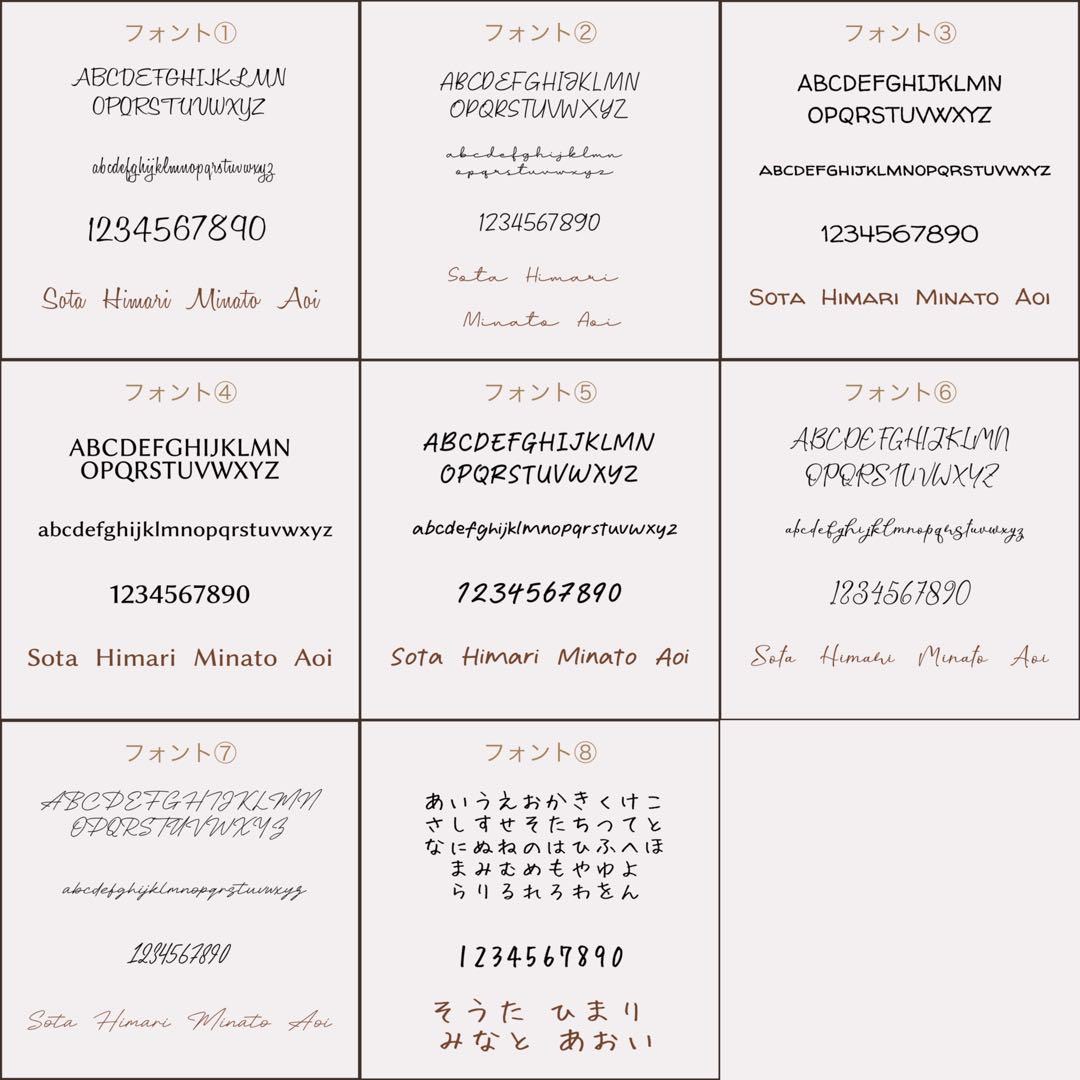 フォント①
ABCDEFGHIJKLMN
OPQRSTUVWXYZ
abcdefghijklmnopqrstuvwxyz
1234567890
Sota Himari Minato Aoi
フォント②
ABCDEFGHIJKLMN
OPQRSTUVWXYZ
abcdefghijklmn
opqrstuvwxyz
1234567890
Sota Himari
Minato Aoi
フォント③
ABCDEFGHIJKLMN
OPQRSTUVWXYZ
ABCDEFGHIJKLMNOPQRSTUVWXYZ
1234567890
SOTA HIMARI MINATO AOI
フォント④
ABCDEFGHIJKLMN
OPQRSTUVWXYZ
abcdefghijklmnopqrstuvwxyz
1234567890
Sota Himari Minato Aoi
フォント⑤
ABCDEFGHIJKLMN
OPQRSTUVWXYZ
abcdefghijklmnopqrstuvwxyz
1234567890
Sota Himari Minato Aoi
フォント⑥
ABCDEFGHIJKLMN
OPQRSTUVWXYZ
abcdefghijklmnopqrstuvwxyz
1234567890
Sota Himari Minato Aoi
フォント⑦
ABCDEFGHIJKLMN
OPQRSTUVWXYZ
abcdefghijklmnopqrstuvwxyz
1234567890
Sota Himari Minato Aoi
フォント⑧
あいうえおかきくけこ
さしすせそたちつてと
なにぬねのはひふへほ
まみむめもやゆよ
らりるれろわをん
1234567890
そうた ひまり
みなと あおい